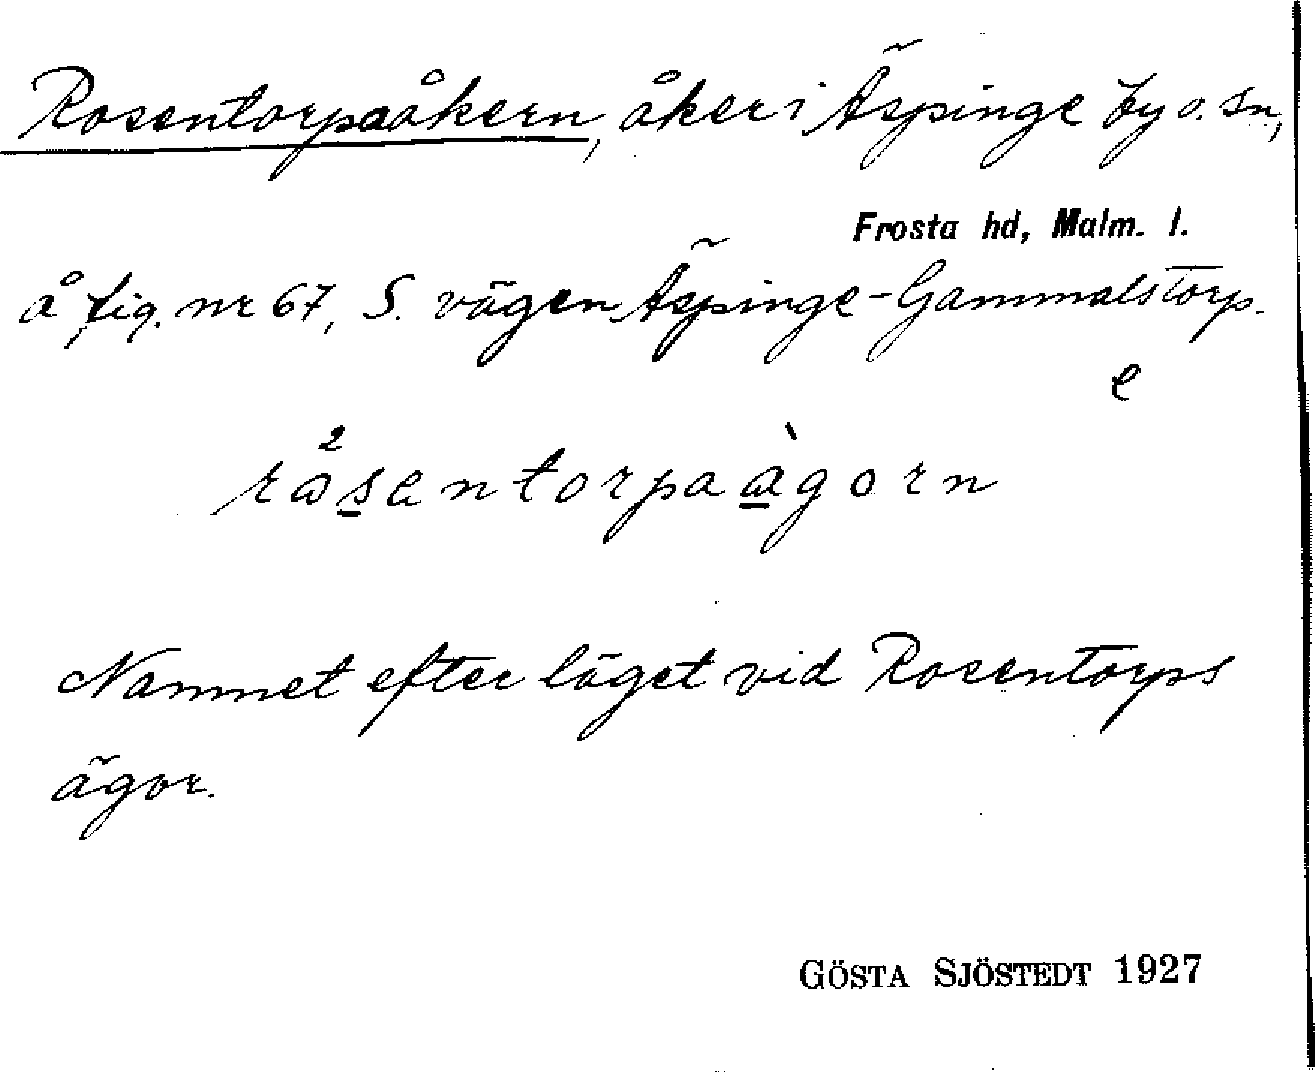 Rosentorpaåkern, åker i Äspinge by o. sn,
Frosta hd, Malm. l.
å fig. nr 67, S. vägen Äspinge-Gammalstorp.
e
Namnet efter läget vid Rosentorps
ägor.
GÖSTA SJÖSTEDT 1927